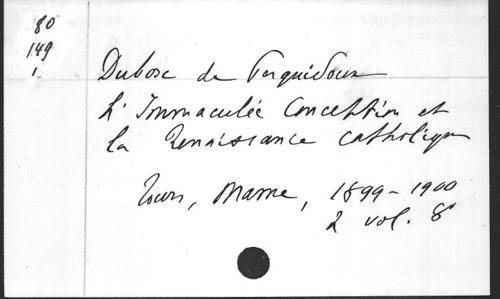 80
149
1
Dubosc de Pesquidoux
L'Immaculée Conception et
la Renaissance catholique
Tours, Mame, 1899-1900
2 vol. 8°